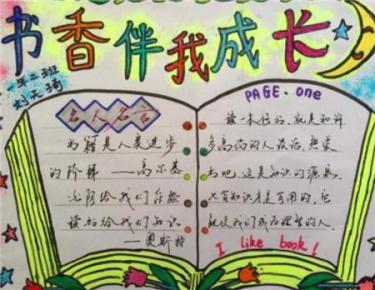 书香伴我成长
一年二班
名人名言
书籍是人类进步
的阶梯——高尔基
光阴给我们经验
读书给我们知识
——奥斯特
PAGE. one
读一本好的，就是和许
多高尚的人谈话，热爱
书吧 这是知识的源泉，
只有知识才是有用的，它
能使我们成为理智的人.
I like book!